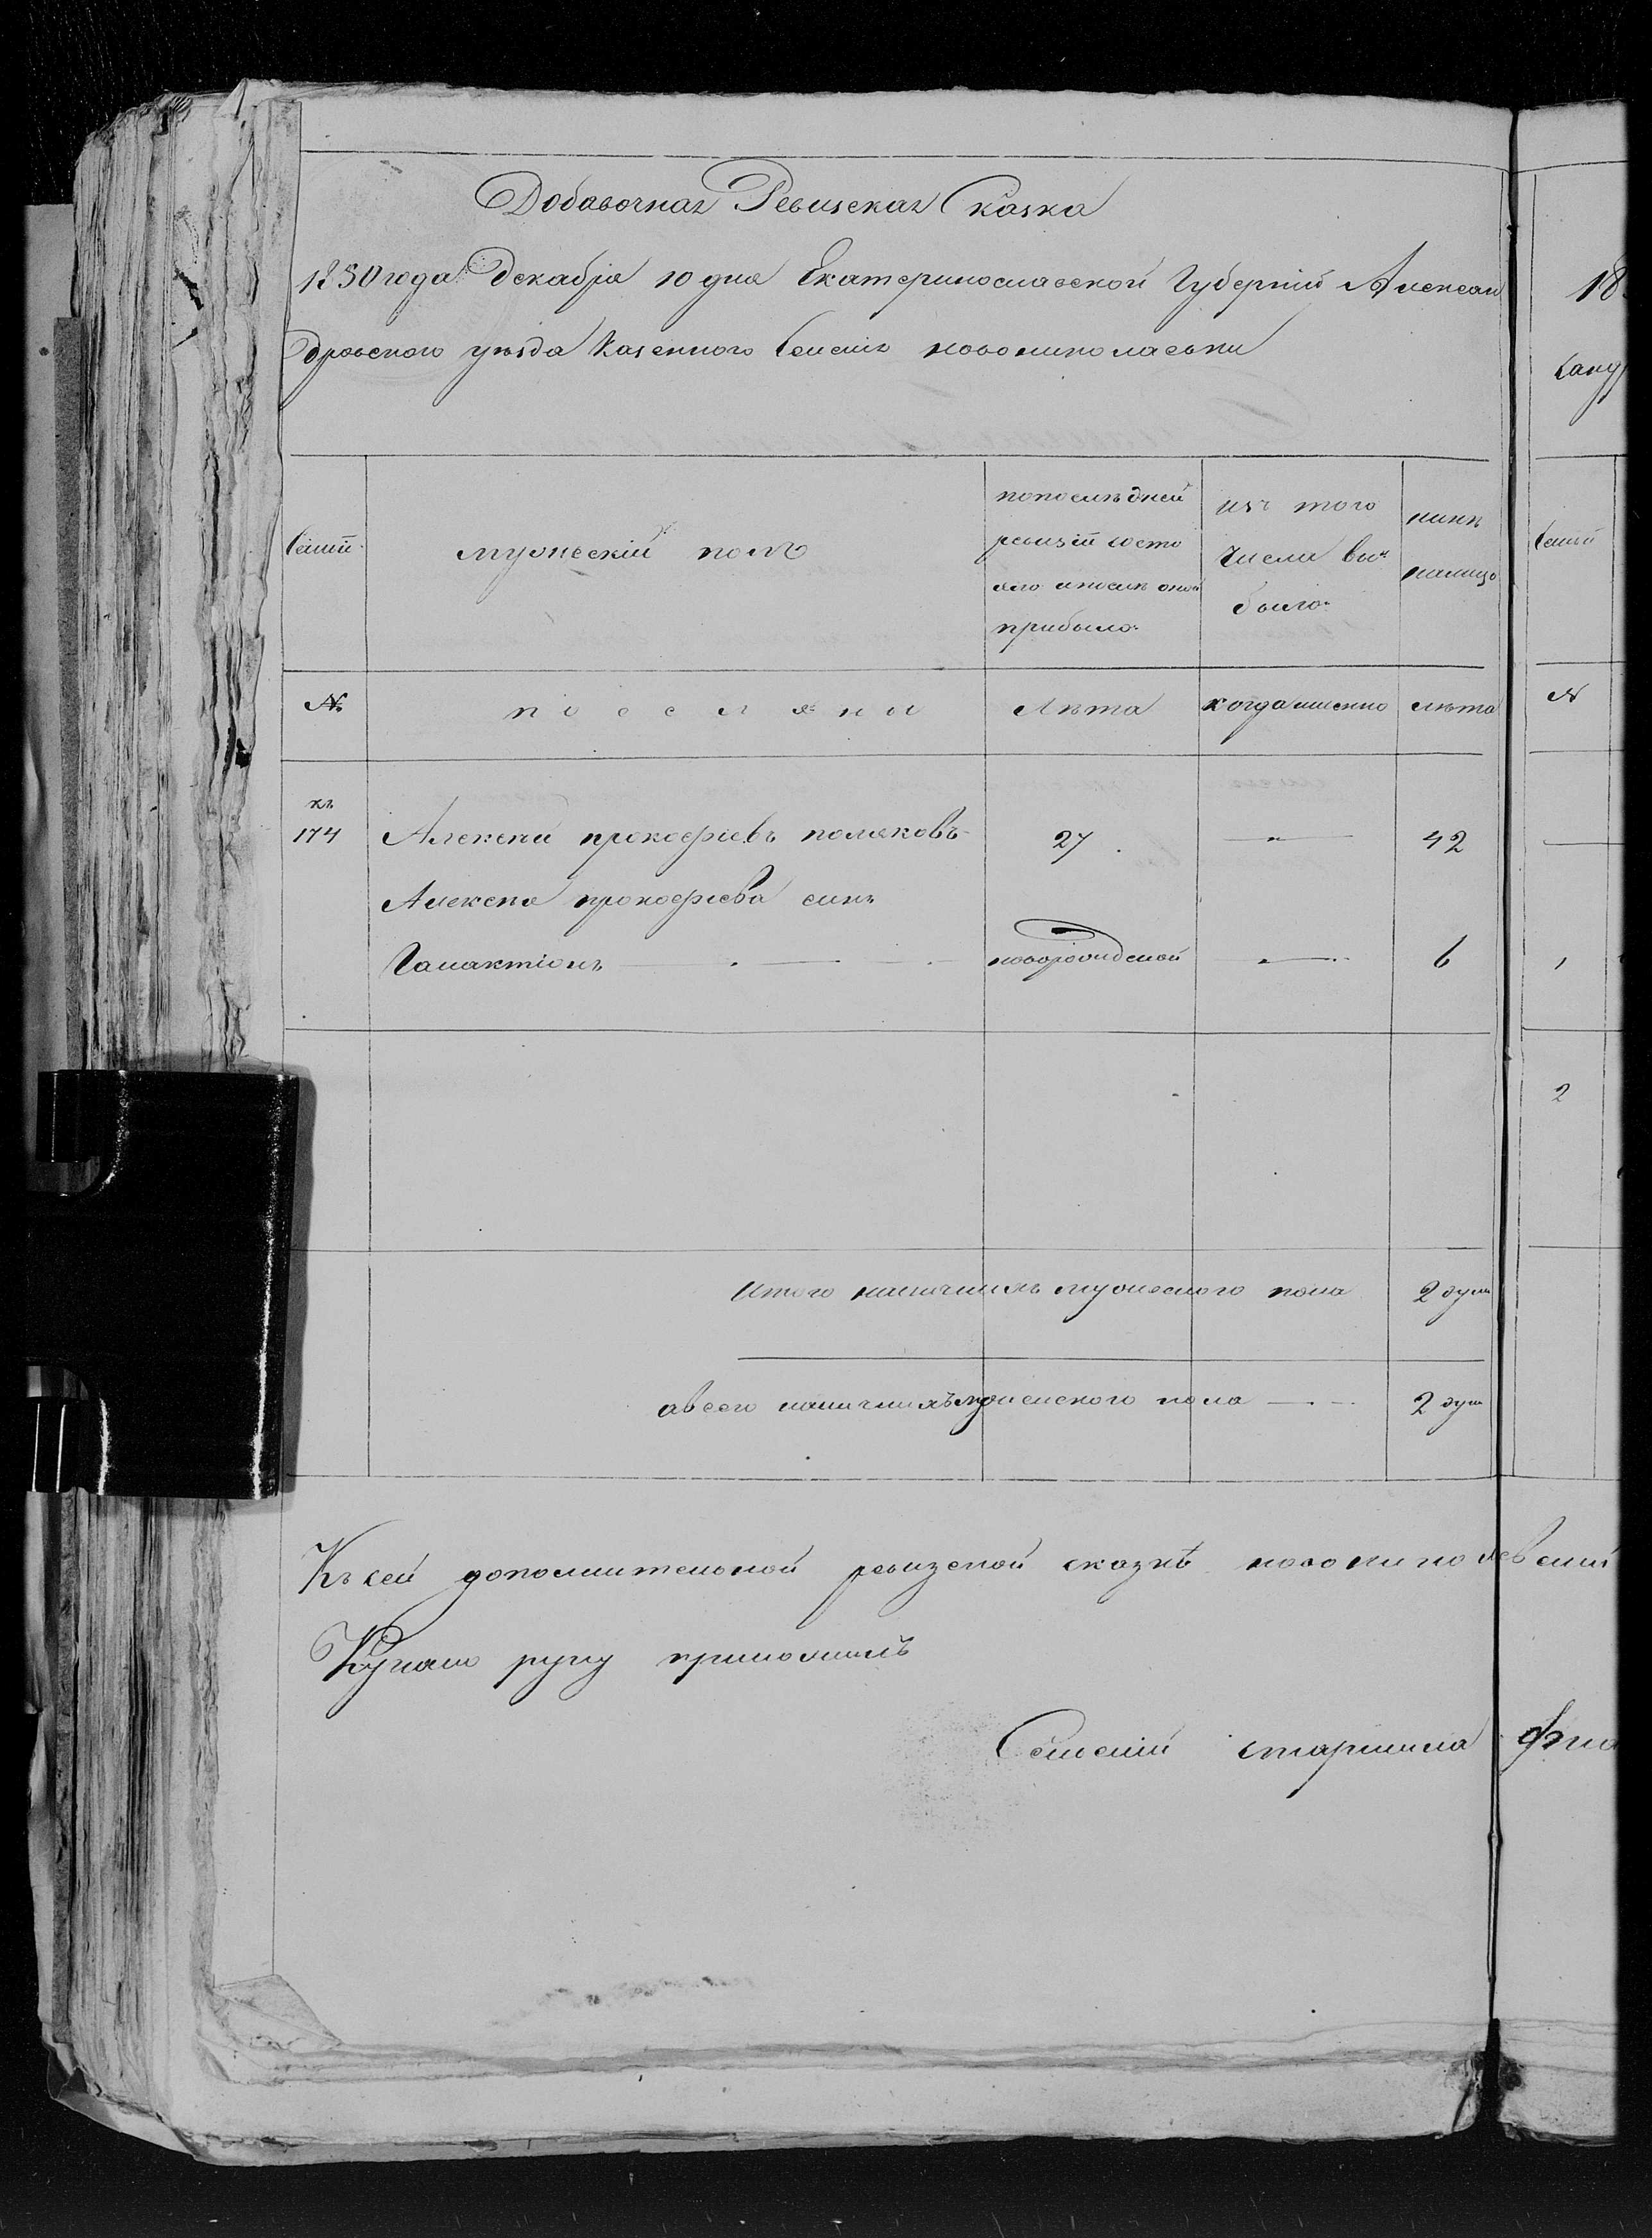 Добавочная Ревизская Сказка
1850 года Декабря 10 дня Екатеринославской Губернии Алексан
дровского уезда Казенного Селения новониколаевки
Семей
мужеский полъ
попоследней
ревизии состо
яло ипосле оной
прибыло
изъ того
числа вы
было
ныне
налицо
№
поселяны
Лета
когда именно
лета
къ
174
Алексей прокофіевъ поляковъ
27
42
Алексея прокофіева синъ
Галактіонъ
новорожденой
6
Итого наличнихъ мужеского пола
2 душ
авсего наличнихъ мужеского пола
2 душ
Къ сей дополнительной ревизской сказкѣ
руку приложилъ
Сельский старшина
18
санд
Семей
№
1
2